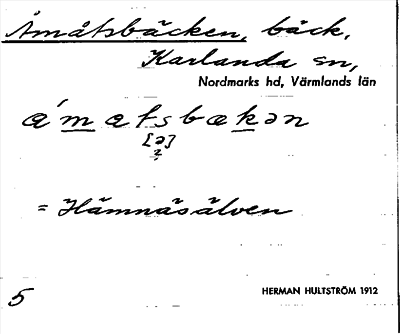 Åmåtsbäcken, bäck,
Karlanda sn,
Nordmarks hd, Värmlands län
á m a t s b æ k ə n
[ə]
?
= Hämnäsälven
5
HERMAN HULTSTRÖM 1912